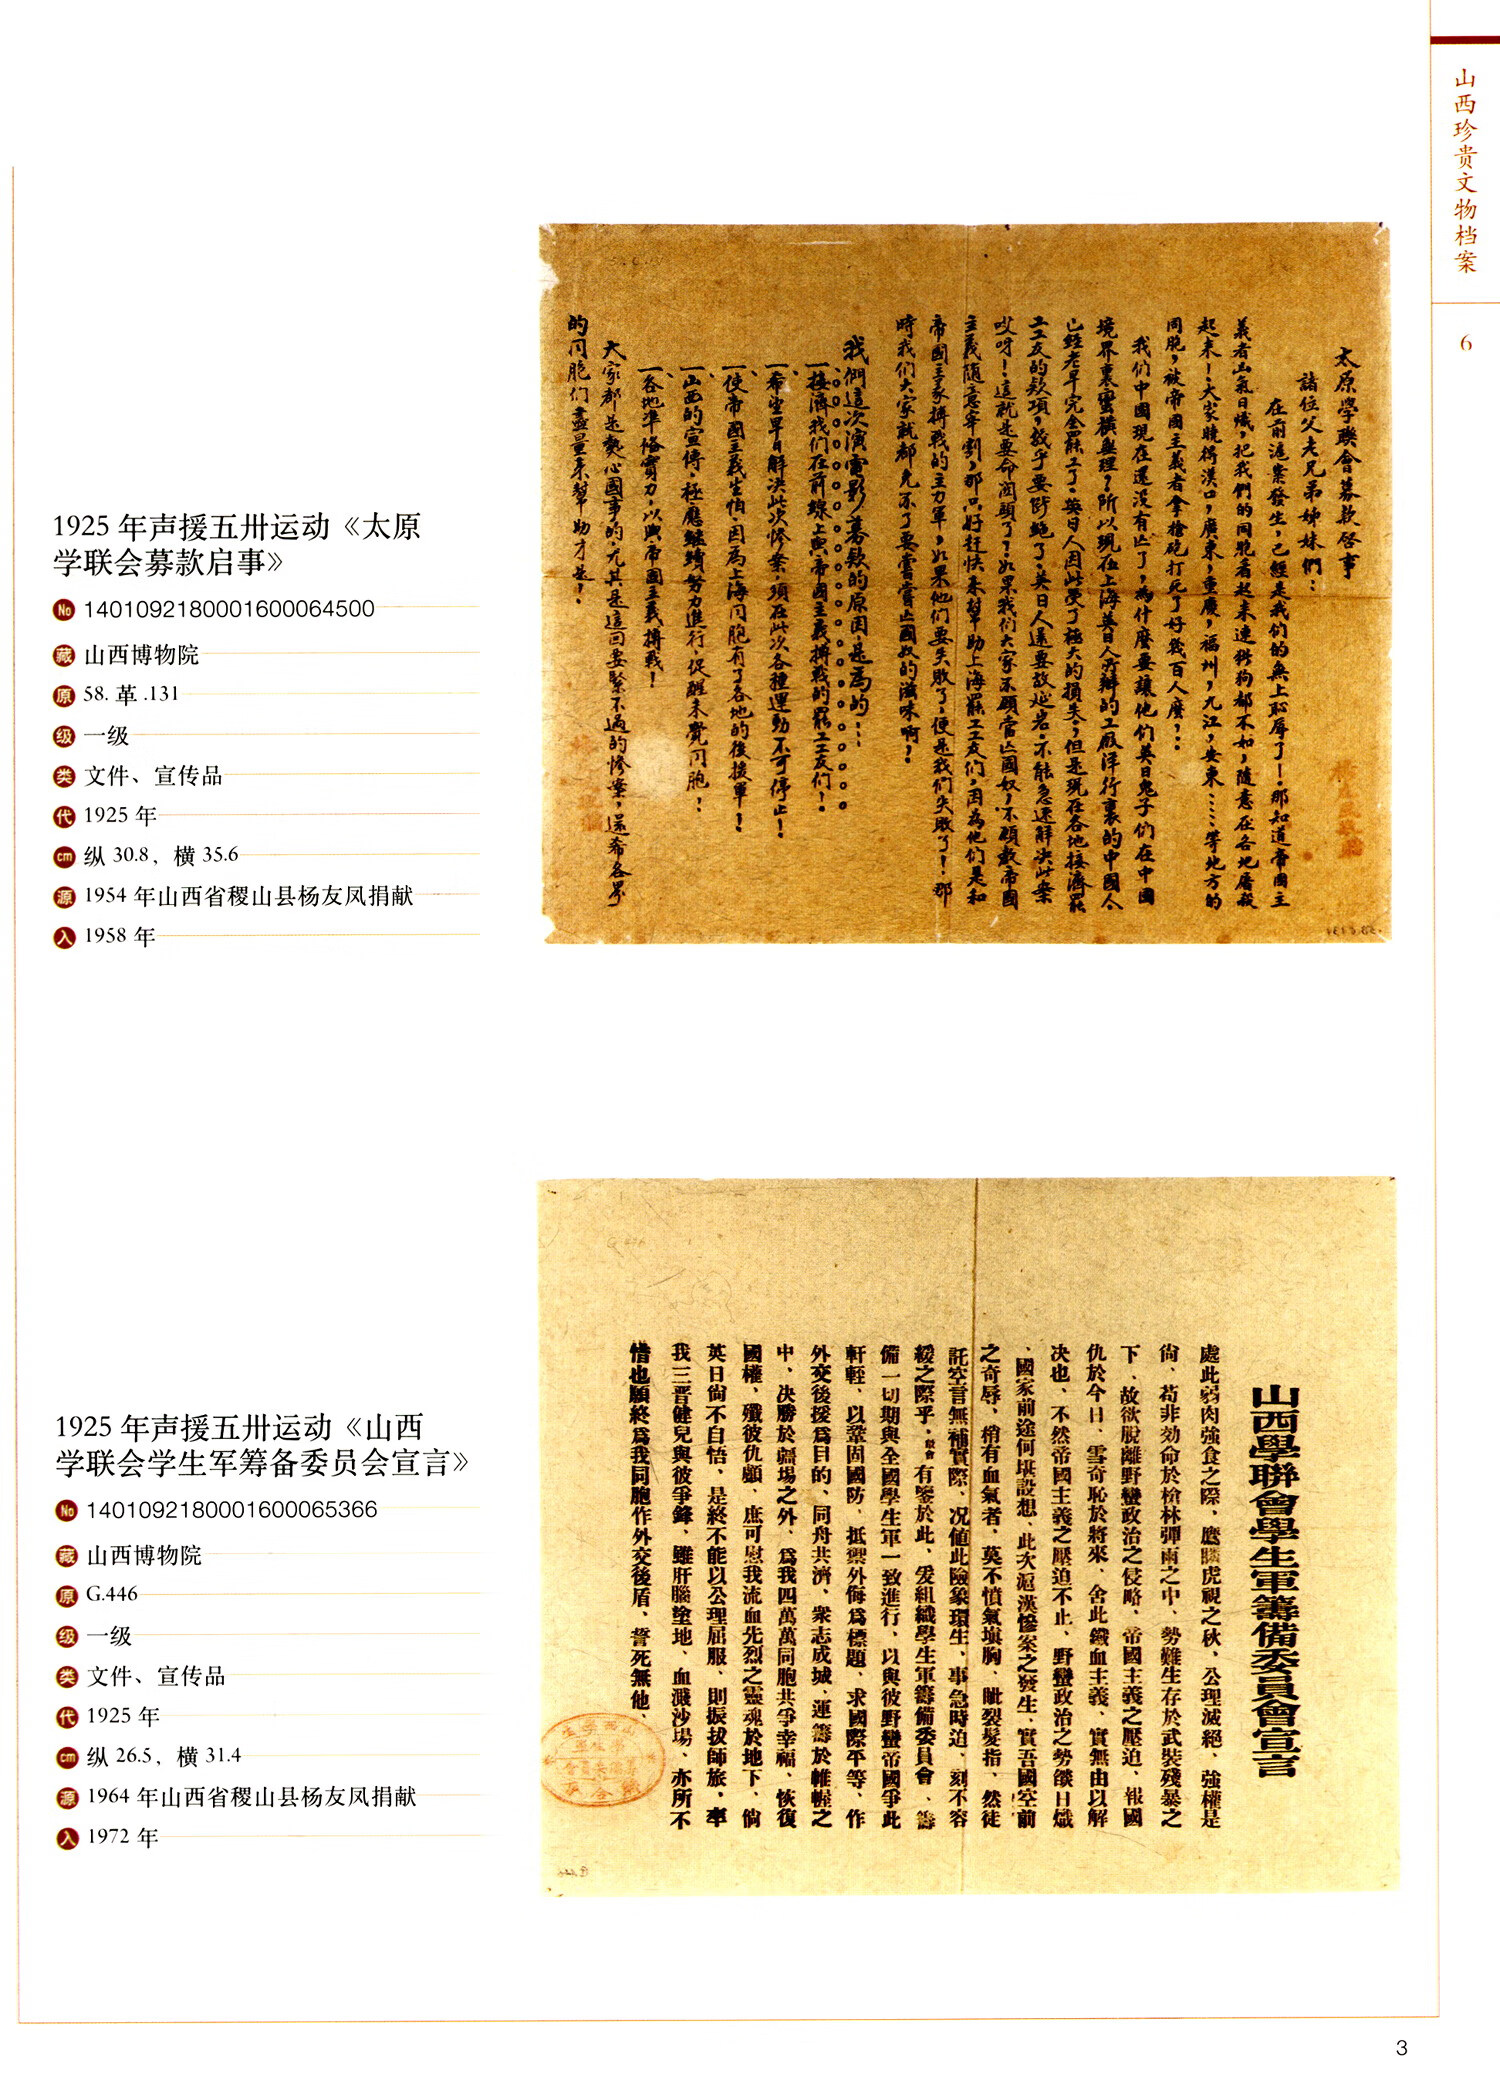 山西珍贵文物档案
6
1925 年声援五卅运动《太原
学联会募款启事》
No 1401092180001600064500
藏 山西博物院
原 58. 革 .131
级 一级
类 文件、宣传品
代 1925 年
cm 纵 30.8，横 35.6
源 1954 年山西省稷山县杨友凤捐献
入 1958 年
太原學聯會募款啓事
諸位父老兄弟姊妹們：
在前滬案發生，已經是我们的無上恥辱了！那知道帝國主
義者凶氣日熾，把我們的同胞看起来連猪狗都不如，隨意在各地屠殺
起来！大家曉得漢口，廣東，重慶，福州，九江，安東……等地方的
同胞，被帝國主義者拿槍砲打死了好幾百人麽？
我们中國現在還没有亡了，為什麽要讓他们英日鬼子们在中國
境界裏蠻横無理？所以現在上海英日人所辦的工廠洋行裏的中國人
已經老早完全罷工了。英日人因此受了極大的損失，但是現在各地接濟罷
工工友的欵項，幾乎要斷絶了，英日人還要故延宕，不能急速解决此案
哎呀！這就是要命関頭了！如果我们大家不願當亡國奴，不願教帝國
主義隨意宰割，那只好赶快来幫助上海罷工工友们，因為他们是和
帝國主義搏戰的主力軍，如果他们要失敗了，便是我们失敗了！那
時我们大家就都免不了要嘗嘗亡國奴的滋味啊！
我們這次演電影募欵的原因，是為的：
一、接濟我们在前線上與帝國主義搏戰的罷工工友们！
一、希望早日解决此次慘案，須在此次各種運動不可停止！
一、使帝國主義生怕，因為上海同胞有了各地的後援軍！
一、山西的宣傳，極應継續努力進行，促醒未覺同胞！
一、各地準俻實力，以與帝國主義搏戰！
大家都是熱心國事的，尤其是這回要緊不過的慘案，還希各界
的同胞们盡量来幫助才是！
1925 年声援五卅运动《山西
学联会学生军筹备委员会宣言》
No 1401092180001600065366
藏 山西博物院
原 G.446
级 一级
类 文件、宣传品
代 1925 年
cm 纵 26.5，横 31.4
源 1964 年山西省稷山县杨友凤捐献
入 1972 年
山西學聯會學生軍籌備委員會宣言
處此弱肉強食之際、鷹瞵虎視之秋、公理滅絕、強權是
尙、苟非効命於槍林彈雨之中、勢難生存於武裝殘暴之
下、故欲脫離野蠻政治之侵略、帝國主義之壓迫、報國
仇於今日、雪奇恥於將來、舍此鐵血主義、實無由以解
决也、不然帝國主義之壓迫不止、野蠻政治之勢燄日熾
、國家前途何堪設想、此次滬漢慘案之發生、實吾國空前
之奇辱、稍有血氣者、莫不憤氣塡胸、眦裂髮指、然徒
託空言無補實際、况値此險象環生、事急時迫、刻不容
緩之際乎、敝會有鑒於此、爰組織學生軍籌備委員會、籌
備一切期與全國學生軍一致進行、以與彼野蠻帝國爭此
軒輊、以鞏固國防、抵禦外侮爲標題、求國際平等、作
外交後援爲目的、同舟共濟、衆志成城、運籌於帷幄之
中、决勝於疆場之外、爲我四萬萬同胞共爭幸福、恢復
國權、殲彼仇顱、庶可慰我流血先烈之靈魂於地下、倘
英日尙不自悟、是終不能以公理屈服、則振拔師旅、率
我三晉健兒與彼爭鋒、雖肝腦塗地、血濺沙場、亦所不
惜也願終爲我同胞作外交後盾、誓死無他、
3